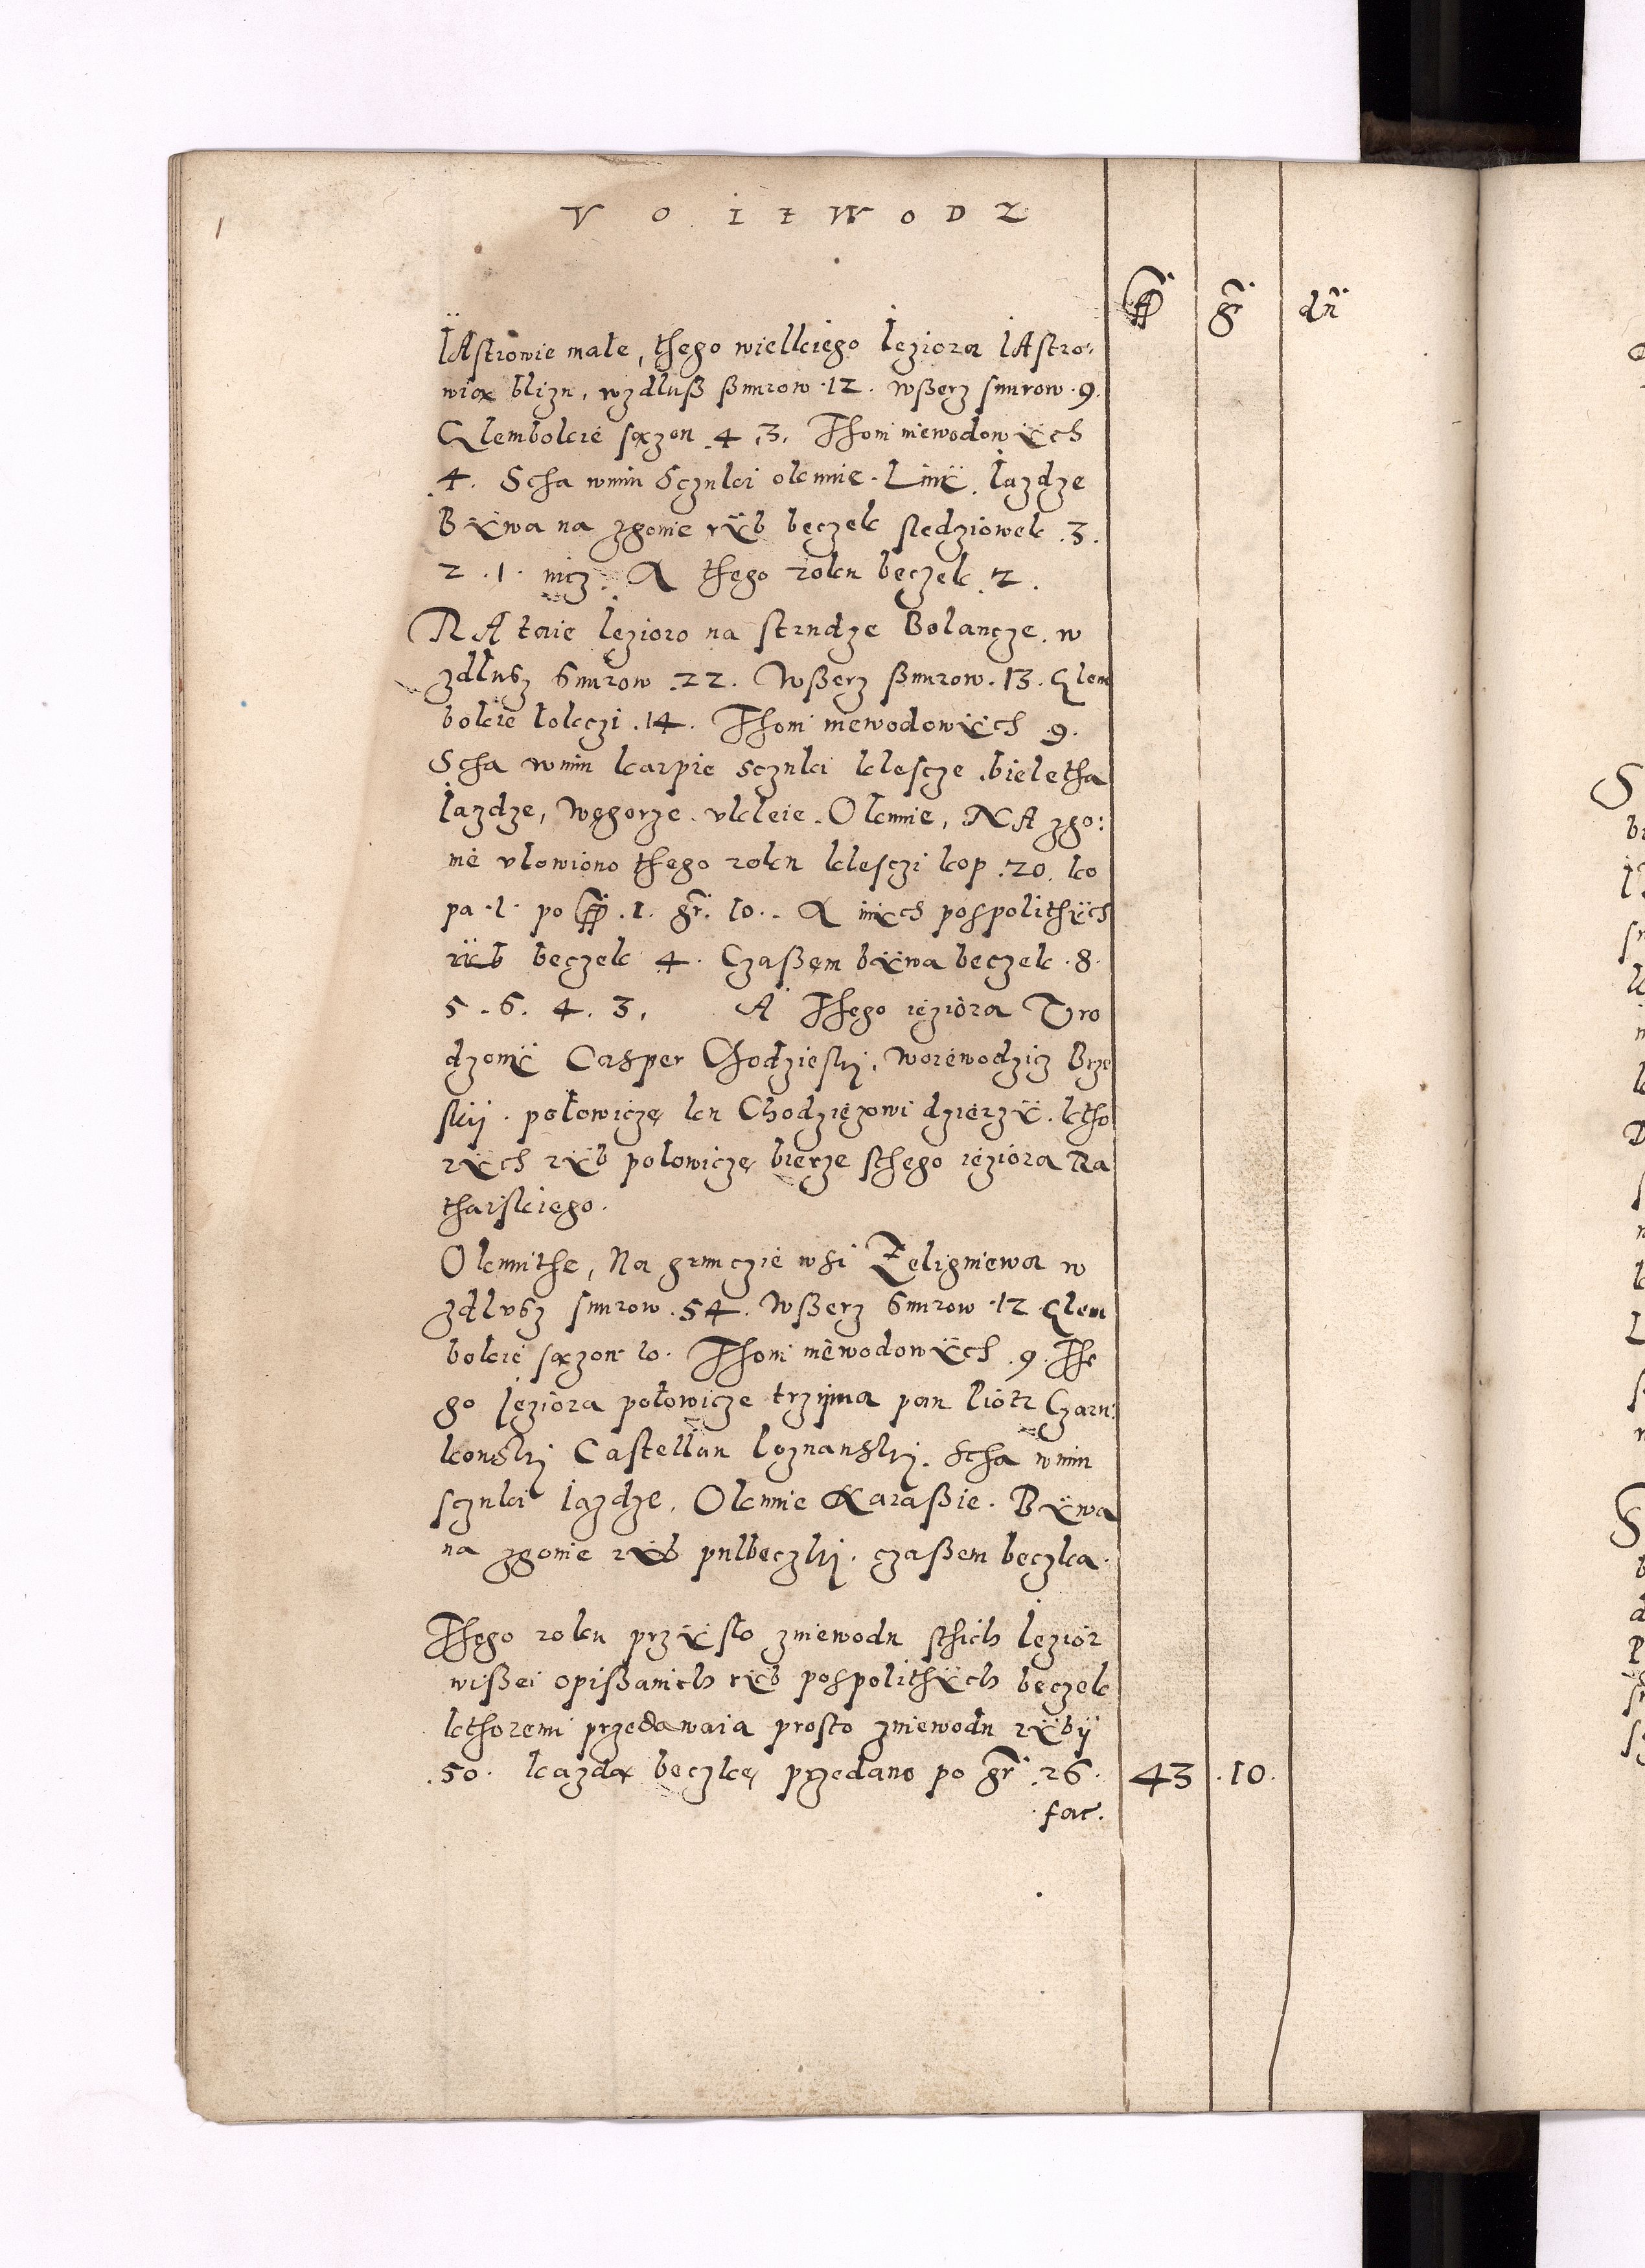 V O I E W O D Z
fl̃ gr̃ dñ
IAstrowie małe, thego wielkiego Ieziora IAstro:
wia blizu, wzdluß ßnurow .12. wßerz snurow .9.
Glembokie sązon .4 .3. Thoni niewodowÿch
.4. Scha wnim Sczuki okunie. Linÿ. Iazdze
Bÿwa na zgonie rÿb beczek sledziowek .3.
2 .1. nicz. A thego roku beczek .2.
RAtaie Iezioro na strudze Bolancze. w
zdłusz Snurow .22. Wßerz ßnurow .13. Glem
bokie lokczi .14. Thoni niewodowÿch .9.
Scha wnim karpie sczuki klescze .bieletha
Iazdze, Węgorze. ukleie. Okunie, NA zgo:
nie ulowiono thego roku klesczi kop .20. ko
pa .1. po fl̃ .1. gr̃. 10. A inÿch pospolithÿch
rÿb beczek 4. Czaßem bÿwa beczek .8.
5 .6. 4. 3. A Thego ieziora Uro
dzonÿ Casper Chodzieski, woiewodzicz Brze
skij. połowiczę ku Chodziezowi dzierzÿ. ktho
rÿch rÿb polowiczę bierze sthego ieziora Ra
thaiskiego.
Okunithe, Na grunczie wsi Zeligniewa w
zdlusz snurow .54. Wßerz Snurow .12 Glem
bokie sązon 10. Thoni niewodowÿch .9. The
go Ieziora połowicze trzijma pan Piotr Czarn:
konski Castellan Poznanski. Scha wnim
sczuki Iazdze, Okunie Karaßie. Bÿwa
na zgonie rÿb pulbeczki. czaßem beczka.
Thego roku przÿsło zniewodu sthich Iezior
wißei opißanich rÿb pospolithÿch beczek
kthoremi przedawaia prosto zniewodu rÿbÿ
.50. kazda beczkę przedano po gr̃ .26. 43 .10.
fac.